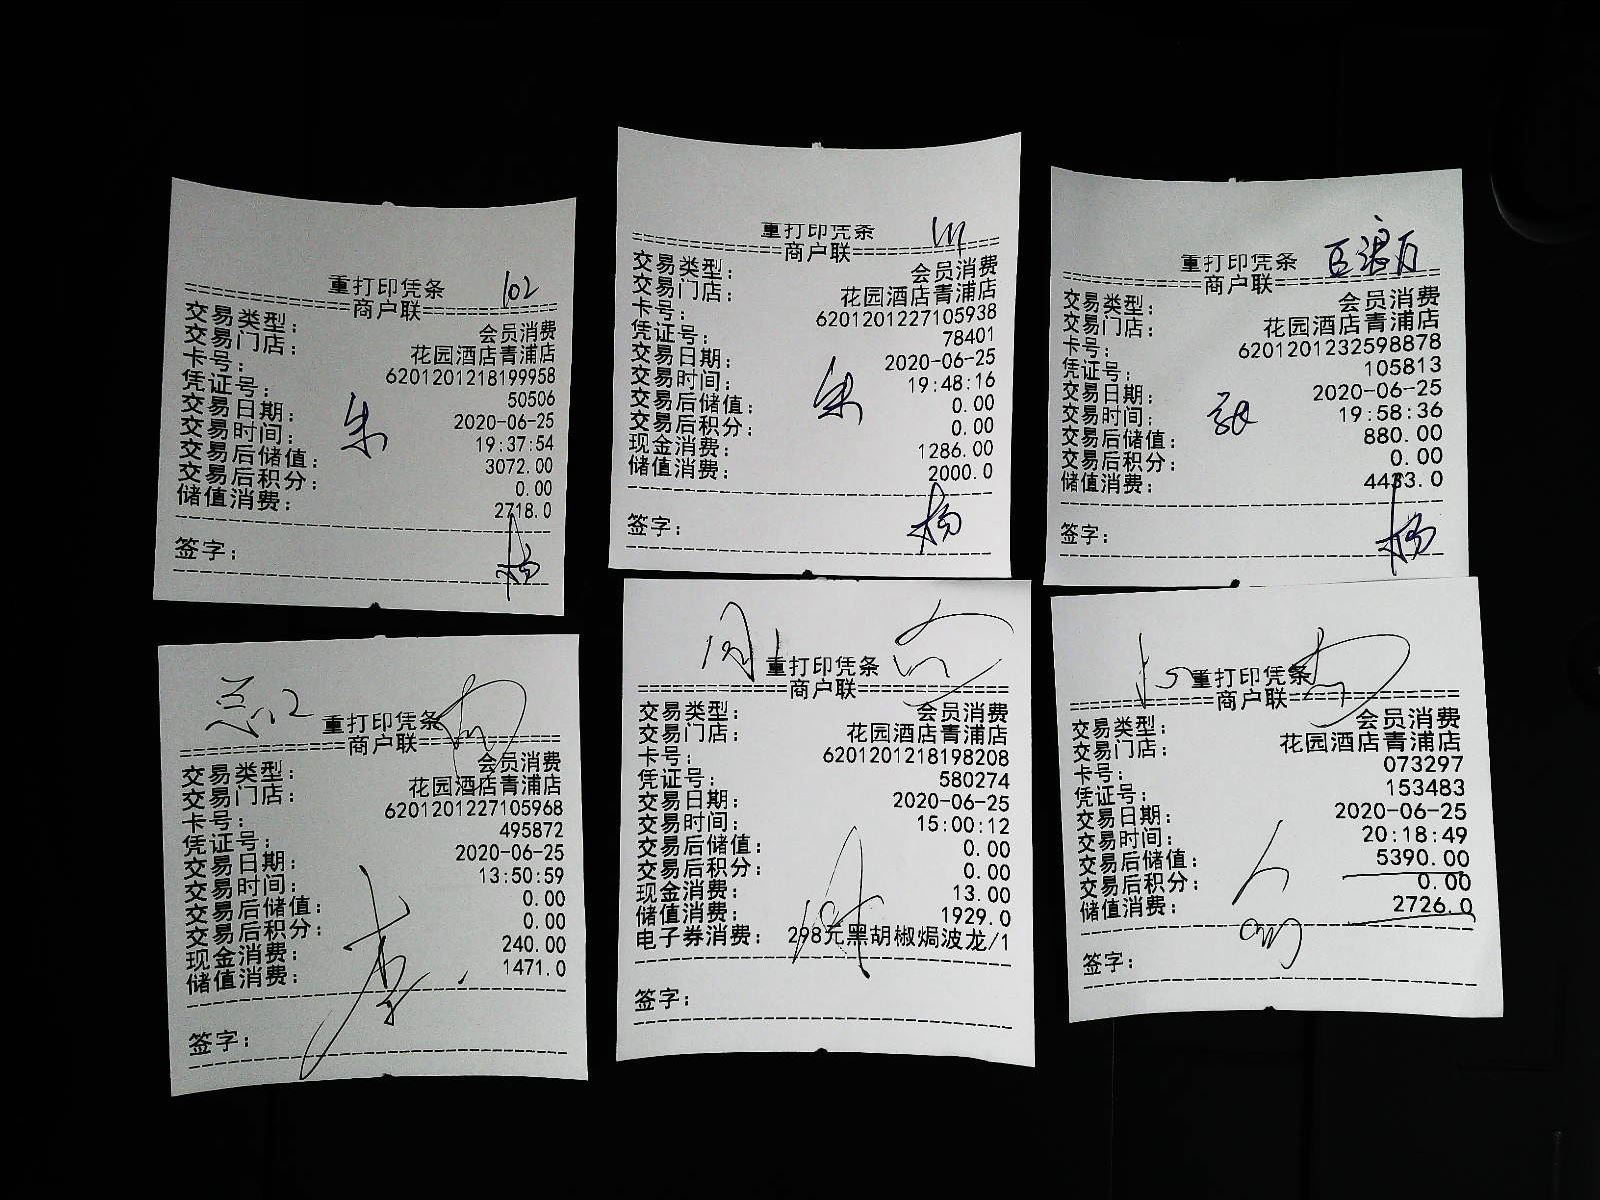 重打印凭条 102
================商户联================
交易类型: 会员消费
交易门店: 花园酒店青浦店
卡号: 6201201218199958
凭证号: 50506
交易日期: 2020-06-25
交易时间: 19:37:54
交易后储值: 3072.00
交易后积分: 0.00
储值消费: 2718.0
朱
签字:
杨
重打印凭条
================商户联================
交易类型: 会员消费
交易门店: 花园酒店青浦店
卡号: 6201201227105938
凭证号: 78401
交易日期: 2020-06-25
交易时间: 19:48:16
交易后储值: 0.00
交易后积分: 0.00
现金消费: 1286.00
储值消费: 2000.0
朱
签字:
杨
重打印凭条
================商户联================
交易类型: 会员消费
交易门店: 花园酒店青浦店
卡号: 6201201232598878
凭证号: 105813
交易日期: 2020-06-25
交易时间: 19:58:36
交易后储值: 880.00
交易后积分: 0.00
储值消费: 4433.0
张
签字:
杨
重打印凭条
================商户联================
交易类型: 会员消费
交易门店: 花园酒店青浦店
卡号: 6201201227105968
凭证号: 495872
交易日期: 2020-06-25
交易时间: 13:50:59
交易后储值: 0.00
交易后积分: 0.00
现金消费: 240.00
储值消费: 1471.0
签字:
重打印凭条
================商户联================
交易类型: 会员消费
交易门店: 花园酒店青浦店
卡号: 6201201218198208
凭证号: 580274
交易日期: 2020-06-25
交易时间: 15:00:12
交易后储值: 0.00
交易后积分: 0.00
现金消费: 13.00
储值消费: 1929.0
电子券消费: 298元黑胡椒焗波龙/1
签字:
重打印凭条
================商户联================
交易类型: 会员消费
交易门店: 花园酒店青浦店
卡号: 073297
凭证号: 153483
交易日期: 2020-06-25
交易时间: 20:18:49
交易后储值: 5390.00
交易后积分: 0.00
储值消费: 2726.0
签字: